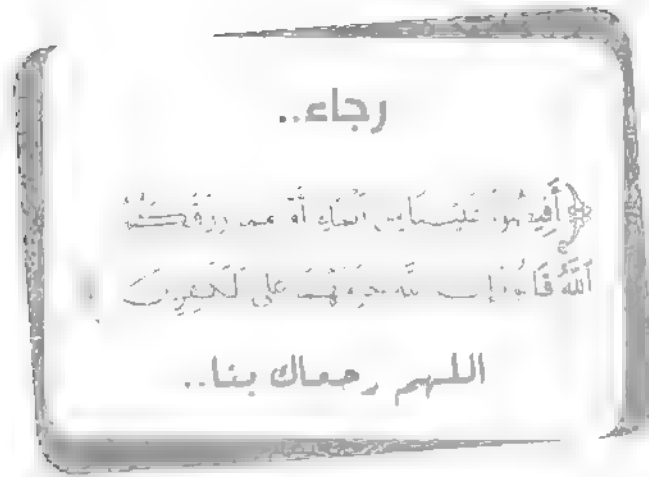 رجاء..
﴿ أَفِيضُوا۟ عَلَيْنَا مِنَ ٱلْمَآءِ أَوْ مِمَّا رَزَقَكُمُ
ٱللَّهُ قَالُوٓا۟ إِنَّ ٱللَّهَ حَرَّمَهُمَا عَلَى ٱلْكَٰفِرِينَ
اللهم رحماك بنا..